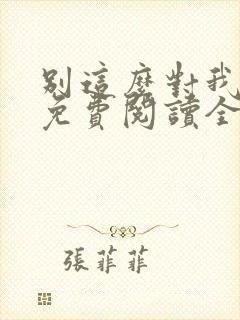 別這麼對我
免費閱讀全
張菲菲